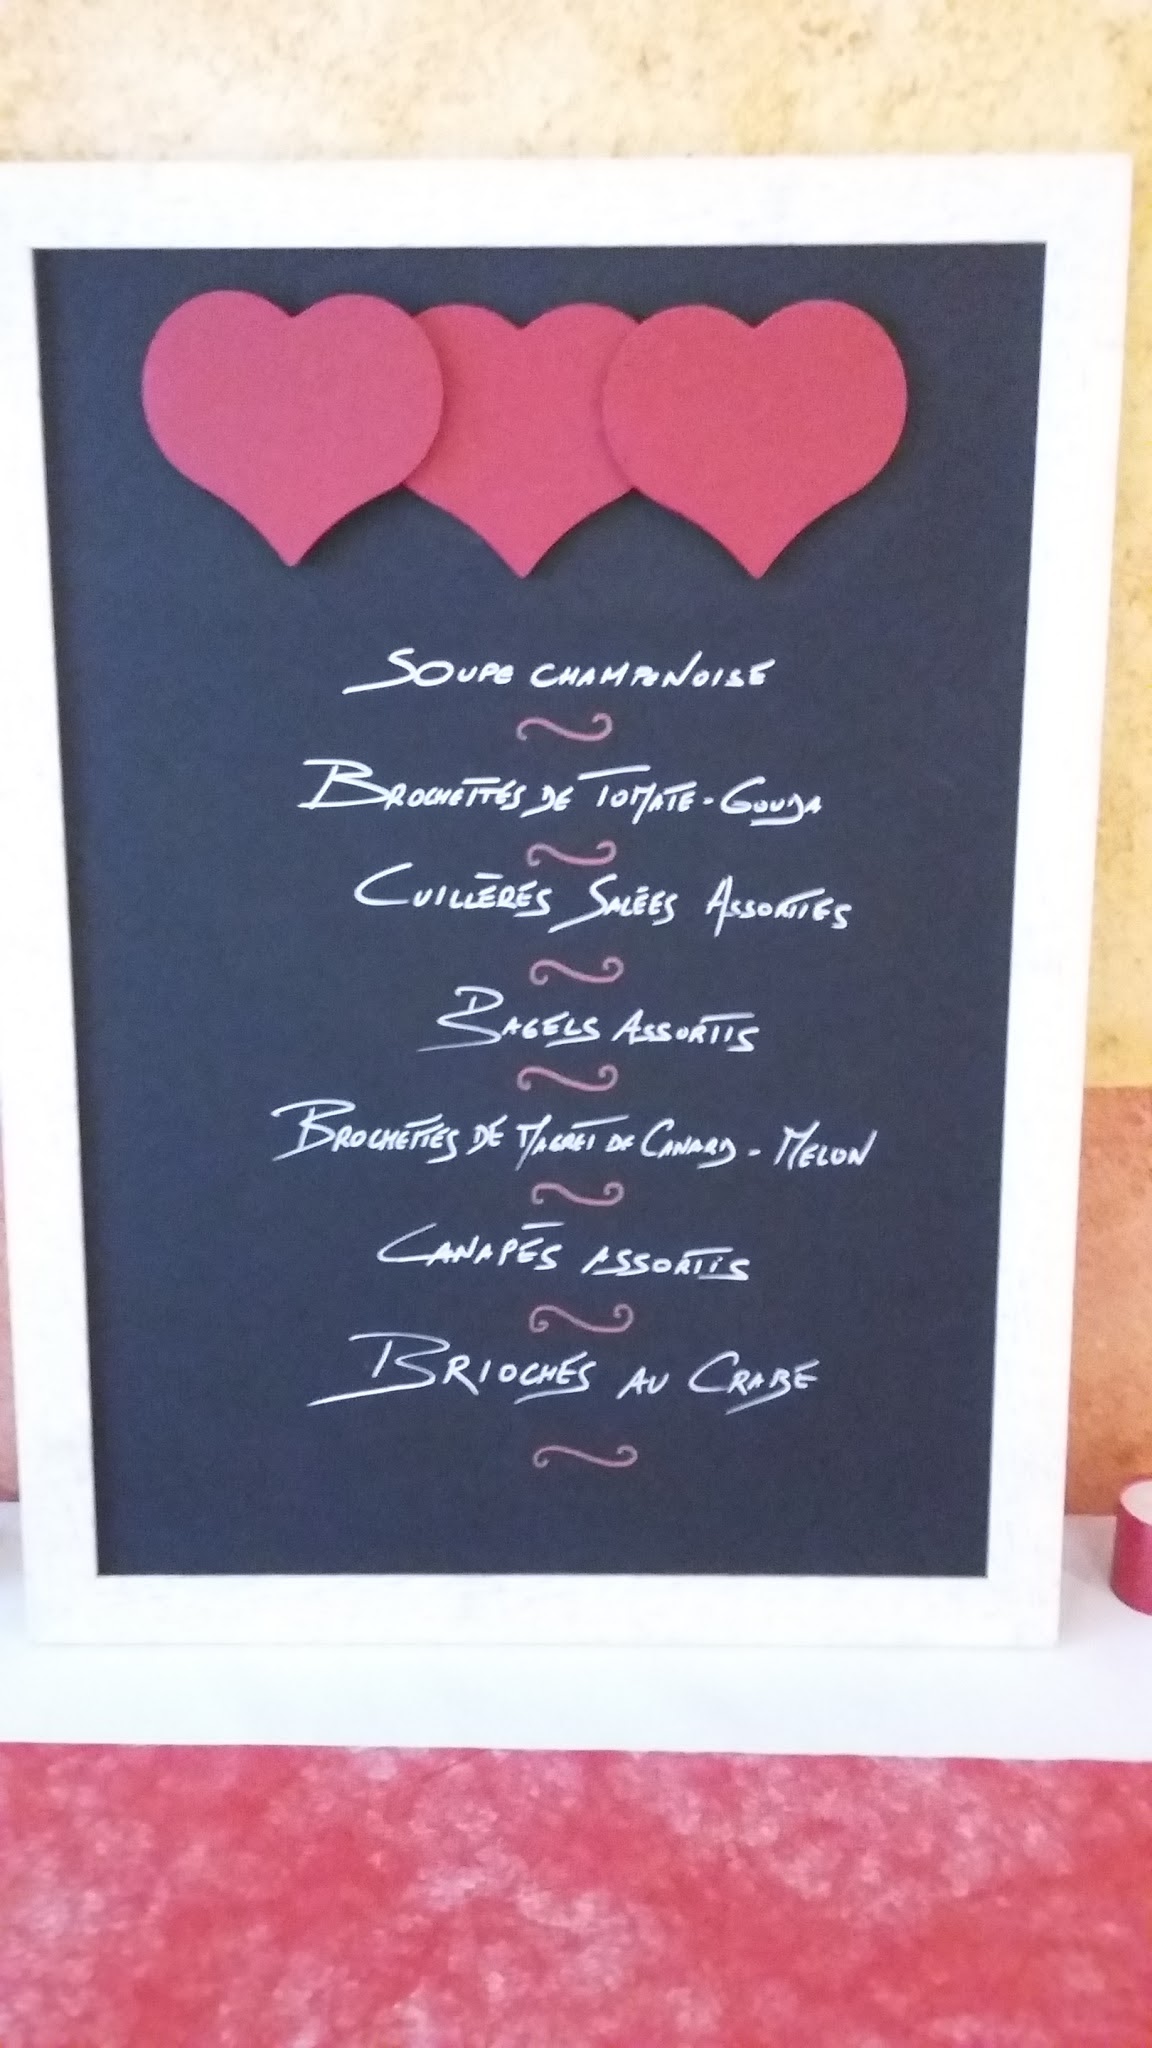 Soupe champenoise
Brochettes de Tomate-Gouda
Cuillères Salées Assorties
Bagels Assortis
Brochettes de Magret de Canard-Melon
Canapés assortis
Brioches au Crabe